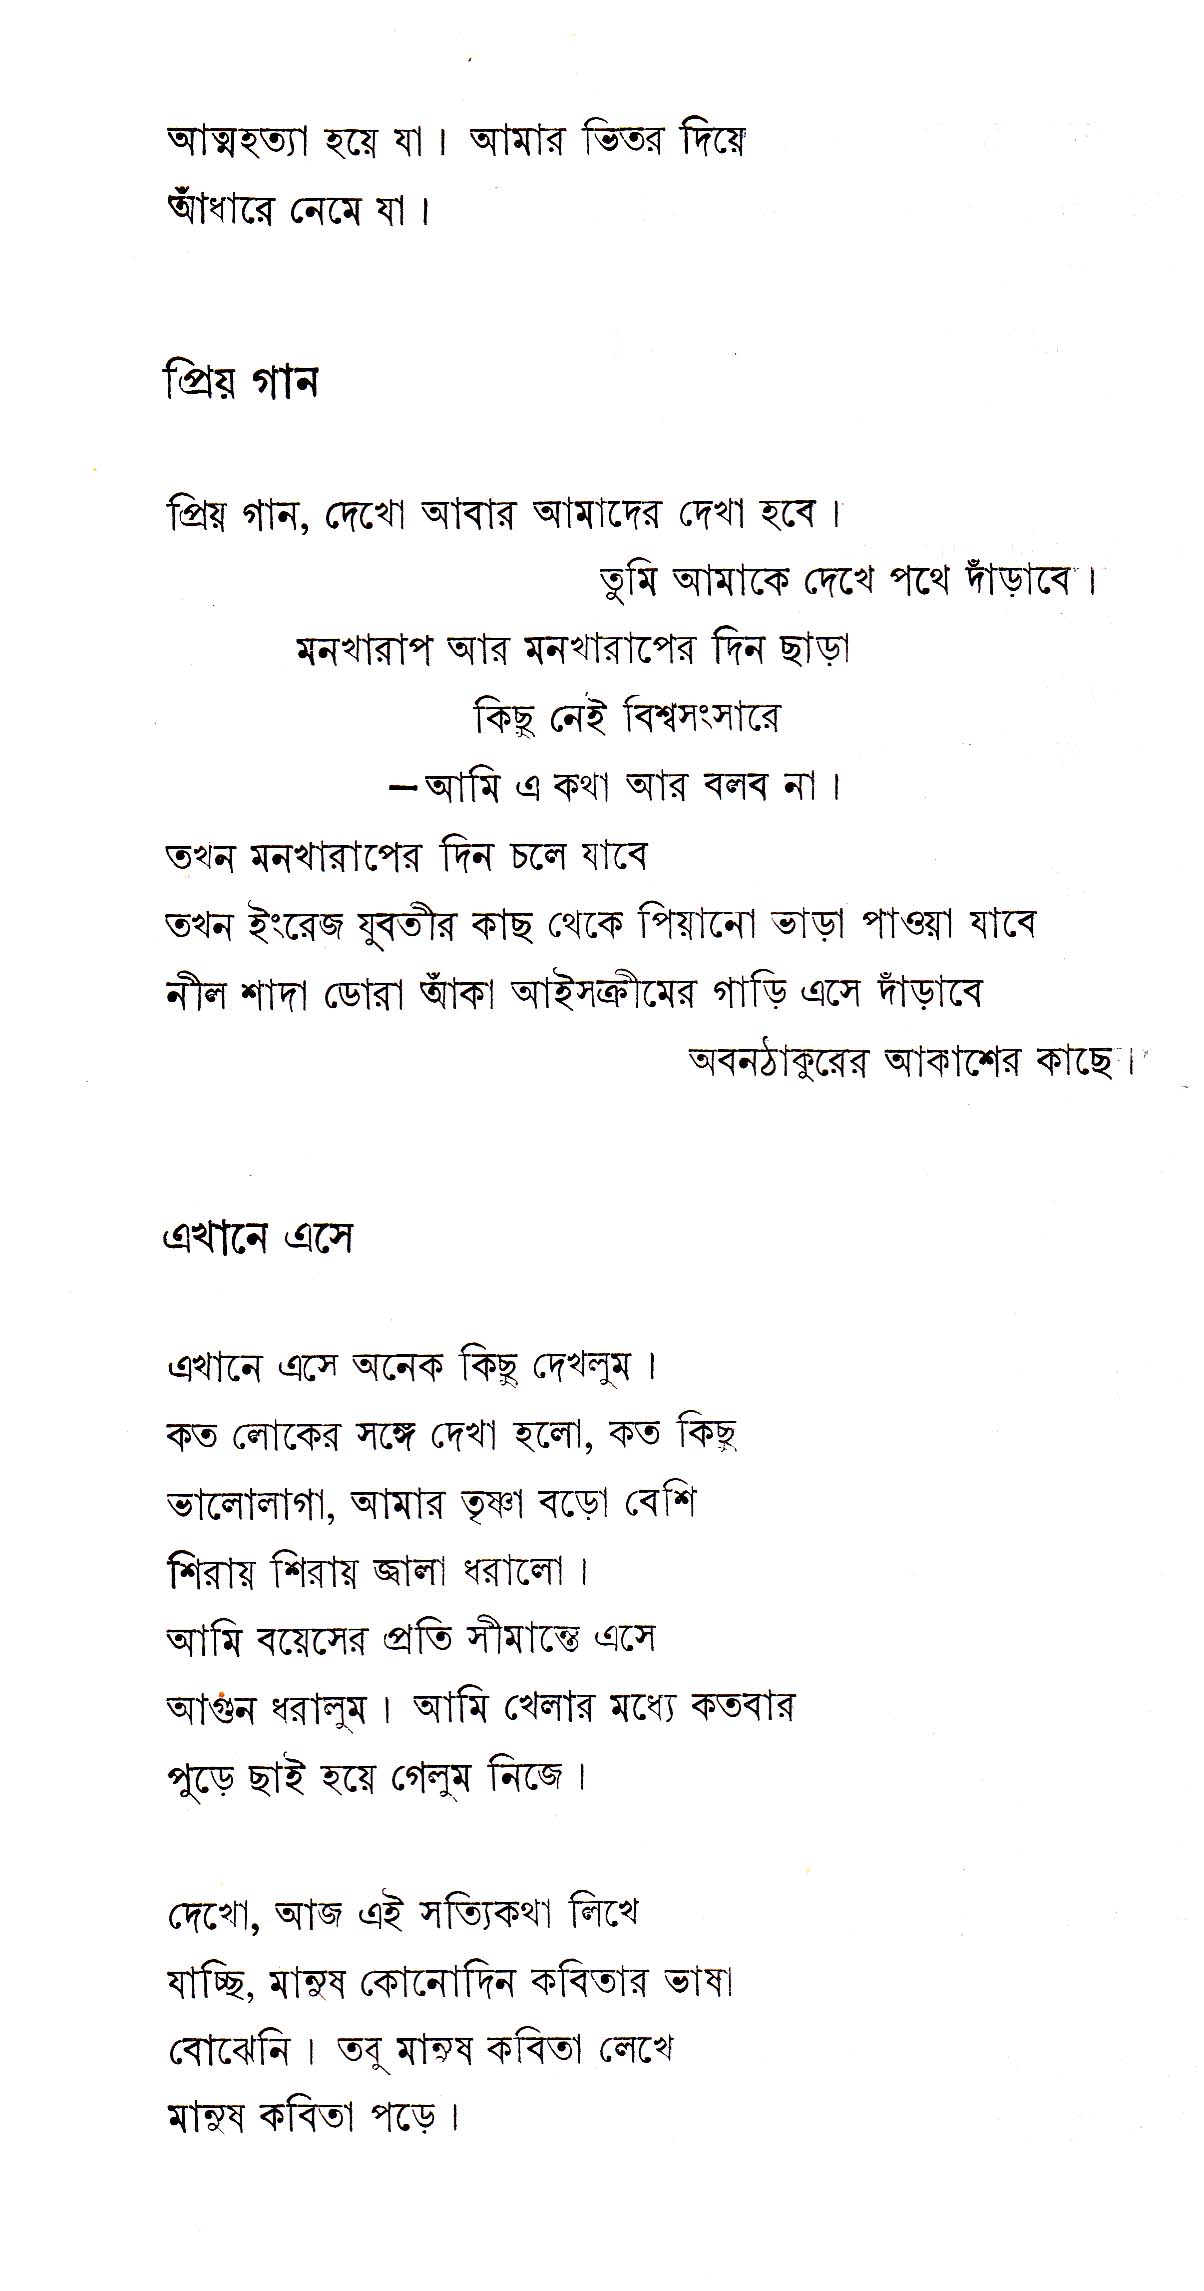 আত্মহত্যা হয়ে যা। আমার ভিতর দিয়ে
আঁধারে নেমে যা।
প্রিয় গান
প্রিয় গান, দেখো আবার আমাদের দেখা হবে।
তুমি আমাকে দেখে পথে দাঁড়াবে।
মনখারাপ আর মনখারাপের দিন ছাড়া
কিছু নেই বিশ্বসংসারে
—আমি এ কথা আর বলব না।
তখন মনখারাপের দিন চলে যাবে
তখন ইংরেজ যুবতীর কাছ থেকে পিয়ানো ভাড়া পাওয়া যাবে
নীল শাদা ডোরা আঁকা আইসক্রীমের গাড়ি এসে দাঁড়াবে
অবনঠাকুরের আকাশের কাছে।
এখানে এসে
এখানে এসে অনেক কিছু দেখলুম।
কত লোকের সঙ্গে দেখা হলো, কত কিছু
ভালোলাগা, আমার তৃষ্ণা বড়ো বেশি
শিরায় শিরায় জ্বালা ধরালো।
আমি বয়েসের প্রতি সীমান্তে এসে
আগুন ধরালুম। আমি খেলার মধ্যে কতবার
পুড়ে ছাই হয়ে গেলুম নিজে।
দেখো, আজ এই সত্যিকথা লিখে
যাচ্ছি, মানুষ কোনোদিন কবিতার ভাষা
বোঝেনি। তবু মানুষ কবিতা লেখে
মানুষ কবিতা পড়ে।